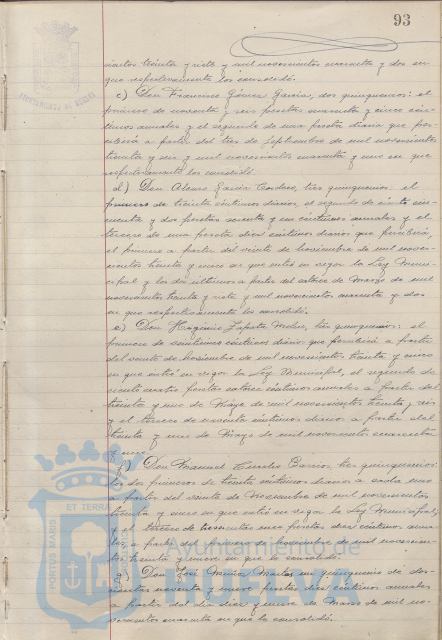 93
AYUNTAMIENTO DE HUELVA
cientos treinta y siete y mil novecientos cuarenta y dos en
que respectivamente los consolidó.
c) Don Francisco Gómez García, dos quinquenios: el
primero de noventa y seis pesetas cuarenta y cinco cén-
timos anuales y el segundo de una peseta diaria que per-
cibirá a partir del tres de Septiembre de mil novecientos
treinta y seis y mil novecientos cuarenta y uno en que
respectivamente los consolidó.
d) Don Alonso García Cordero, tres quinquenios: el
primero de treinta céntimos diarios, el segundo de ciento cin-
cuenta y dos pesetas sesenta y un céntimos anuales y el
tercero de una peseta diez céntimos diarios que percibirá,
el primero a partir del veinte de Noviembre de mil nove-
cientos treinta y cinco en que entró en vigor la Ley Muni-
cipal y los dos últimos a partir del catorce de Marzo de mil
novecientos treinta y siete y mil novecientos cuarenta y dos
en que respectivamente los consolidó.
e) Don Zapata tres quinquenios: el
primero de veinticinco céntimos diarios que percibirá a partir
del veinte de Noviembre de mil novecientos treinta y cinco
en que entró en vigor la Ley Municipal, el segundo de
ciento cuatro pesetas catorce céntimos anuales a partir del
treinta y uno de Mayo de mil novecientos treinta y seis
y el tercero de noventa céntimos diarios a partir del
treinta y uno de Mayo de mil novecientos cuarenta
y uno.
f) Don Manuel Barrios, tres quinquenios:
los dos primeros de treinta céntimos diarios cada uno
a partir del veinte de Noviembre de mil novecientos
treinta y cinco en que entró en vigor la Ley Municipal,
y el tercero de pesetas diez céntimos anua-
les a partir del primero de Noviembre de mil novecien-
tos treinta y nueve en que se consolidó.
g) Don José Muñoz Martos un quinquenio de dos-
cientas noventa y nueve pesetas diez céntimos anuales
a partir del día diez y nueve de Marzo de mil no-
vecientos cuarenta en que lo consolidó.
PORTUS MARIS
ET TERRAE
Ayuntamiento de
HUELVA